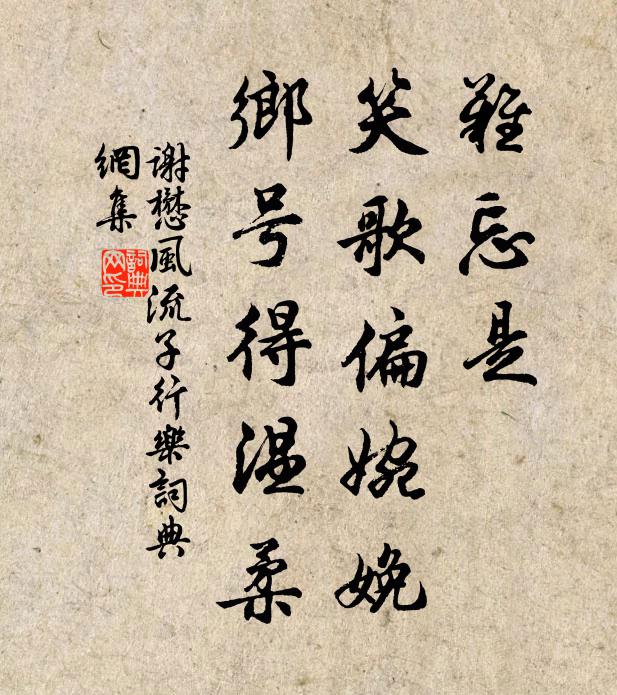 難忘是
笑歌偏婉娩
鄉号得温柔
謝懋風流子行樂詞典
網集
詞典
网印